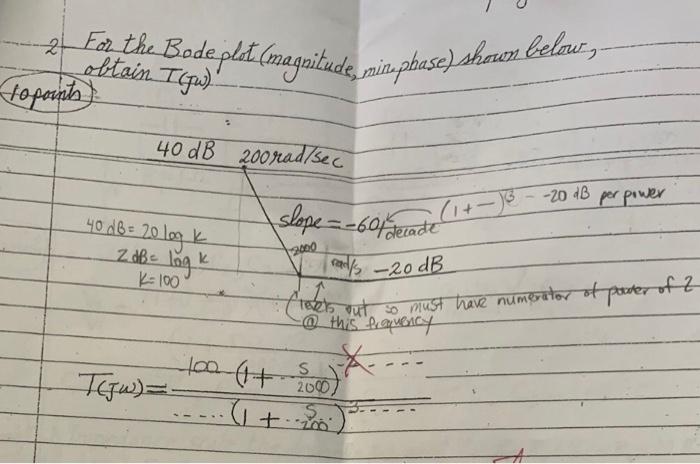 2 For the Bode plot (magnitude, min phase) shown below,
obtain T(jw)
10 points
40 dB 200 rad/sec
slope = -60/decade (1+-)³ - -20 dB per power
40 dB = 20 log k
2 dB = log k
k = 100
2000
rad/s -20 dB
(levels out so must have numerator of power of 2
@ this frequency
T(jw) = 100 (1 + s/2000)
(1 + s/200)³